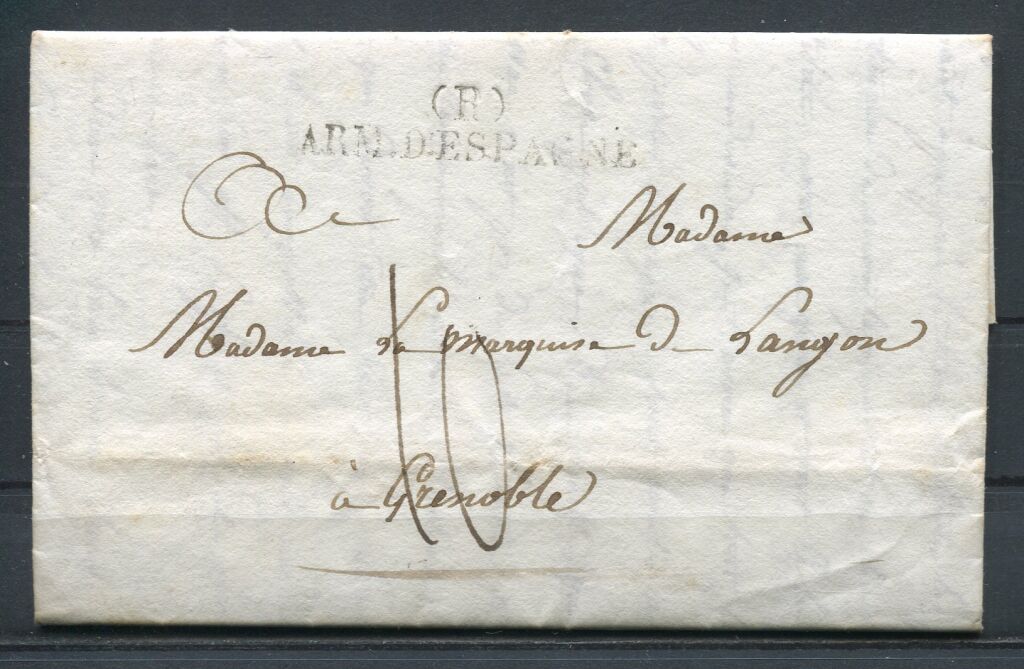 (R)
ARM. D'ESPAGNE
A Madame
Madame La Marquise De Langon
à Grenoble
10